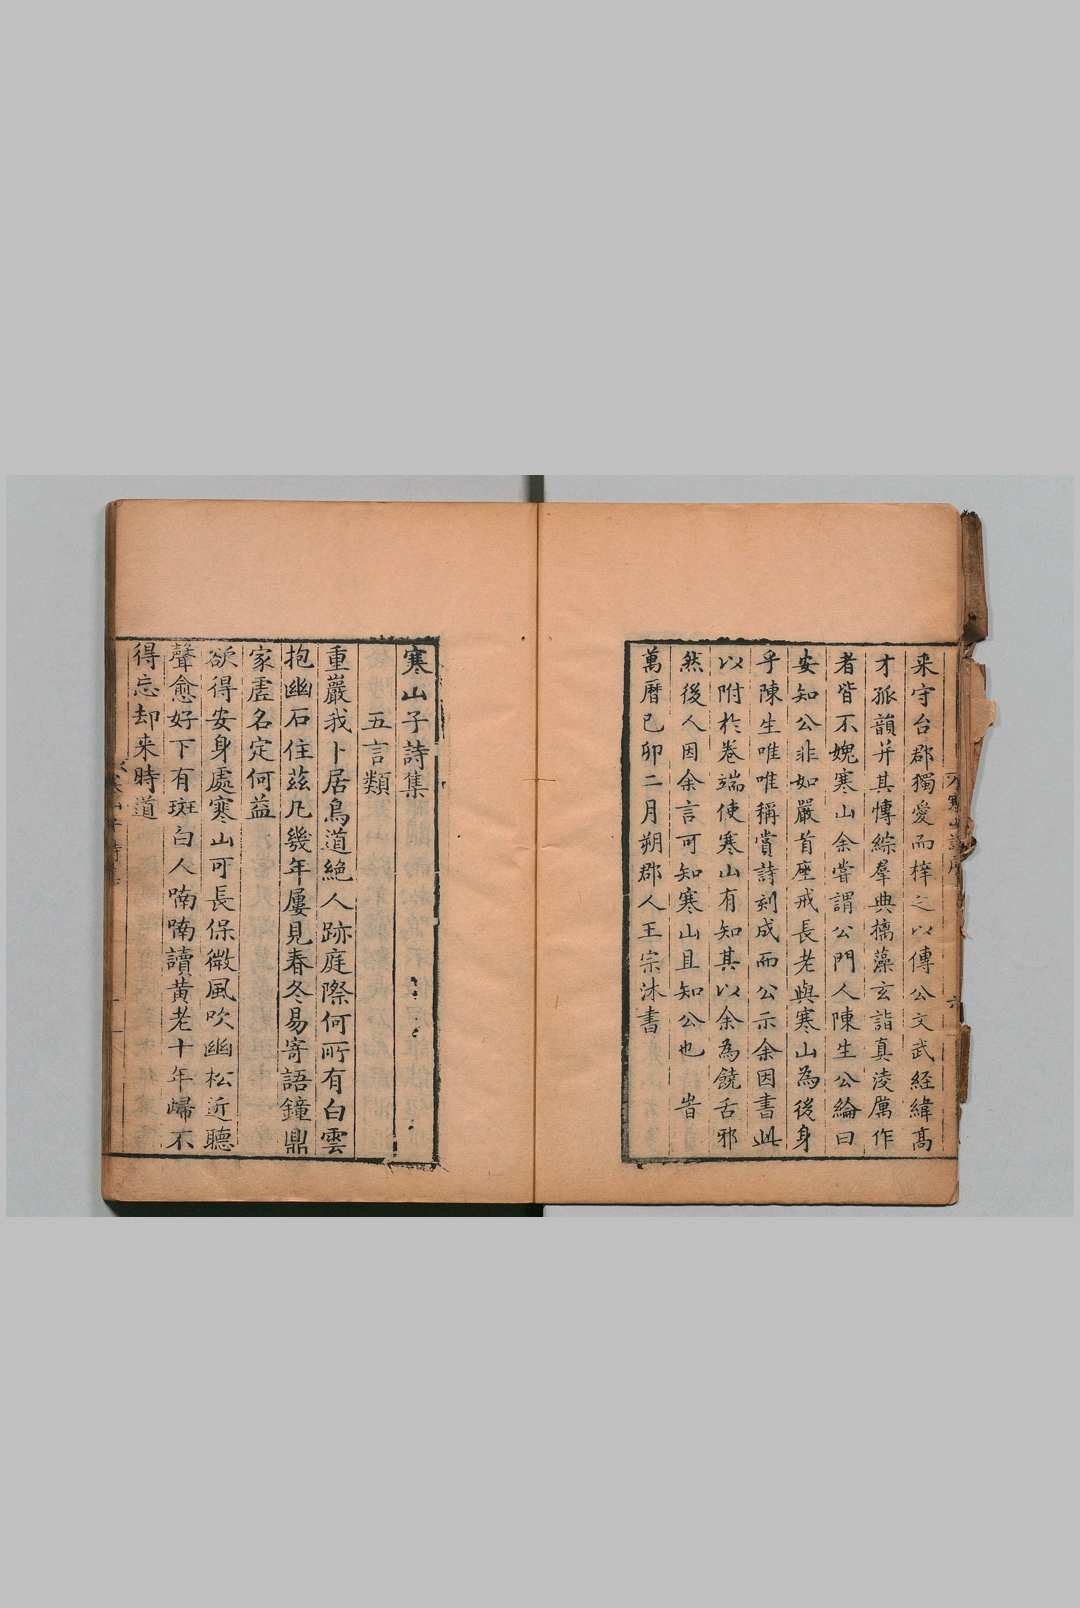 来守台郡獨愛而梓之以傳公文武経緯髙
才孤韻并其愽綜羣典摛藻玄詣真淩厲作
者皆不媿寒山余嘗謂公門人陳生公綸曰
安知公非如嚴首座戒長老與寒山為後身
乎陳生唯唯稱賞詩刻成而公示余因書此
以附扵巻端使寒山有知其以余為饒舌邪
然後人因余言可知寒山且知公也 旹
萬曆己卯二月朔郡人王宗沐書
寒山子詩集
五言類
重巖我卜居鳥道絶人跡庭際何所有白雲
抱幽石住茲凡幾年屢見春冬易寄語鐘鼎
家虛名定何益
欲得安身處寒山可長保微風吹幽松近聽
聲愈好下有斑白人喃喃讀黄老十年㱕不
得忘却来時道